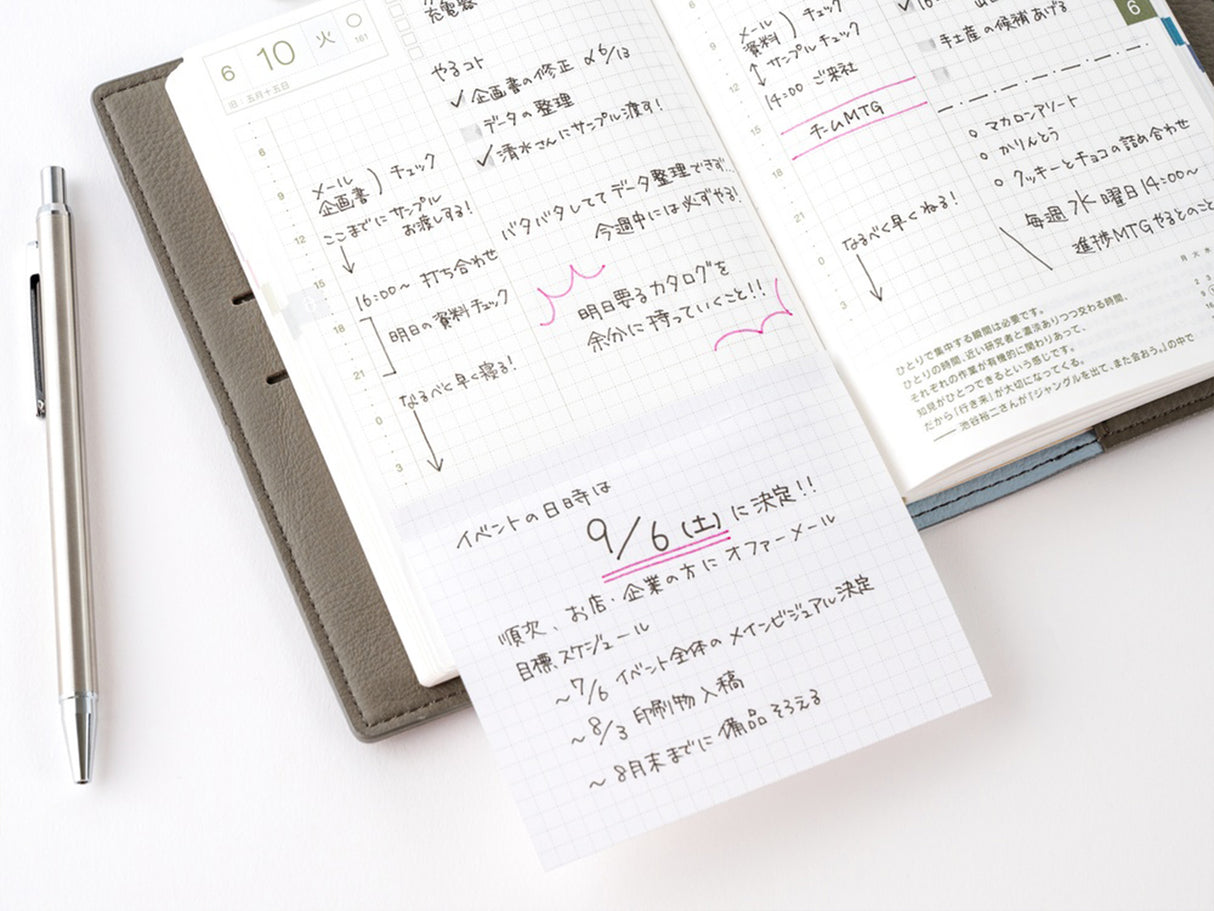 6 10 火
161
旧：五月十五日
充電器
やるコト
✓ 企画書の修正 〆6/13
データの整理
✓ 清水さんにサンプル渡す!
6
9
12
15
18
21
0
3
メール
企画書 ) チェック
ここまでにサンプル
お渡しする!
16:00~ 打ち合わせ
明日の資料チェック
なるべく早く寝る!
バタバタしててデータ整理できず…
今週中には必ずやる!
明日要るカタログを
余分に持っていくこと!!
イベントの日時は
9/6(土)に決定!!
順次、お店・企業の方にオファーメール
目標スケジュール
~7/6 イベント全体のメインビジュアル決定
~8/3 印刷物入稿
~8月末までに備品そろえる
6
9
12
15
18
21
0
3
メール
資料 ) チェック
サンプルチェック
14:00 ご来社
チームMTG
なるべく早くねる!
6
手土産の候補あげる
○ マカロンアソート
○ かりんとう
○ クッキーとチョコの詰め合わせ
毎週水曜日14:00~
進捗MTGやるとのこと
月 火 水
2 3
9
16
ひとりで集中する瞬間は必要です。
ひとりの時間、近い研究者と濃淡ありつつ交わる時間、
それぞれの作業が有機的に関わりあって、
知見がひとつできるという感じです。
だから「行き来」が大切になってくる。
── 池谷裕二さんが『ジャングルを出て、また会おう。』の中で